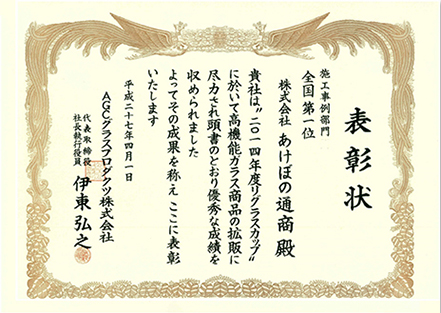 表彰状
施工事例部門
全国 第一位
株式会社 あけぼの通商 殿
貴社は“二〇一四年度リグラスカップ”
に於いて高機能ガラス商品の拡販に
尽力され頭書のとおり優秀な成績を
収められました
よってその成果を称え ここに表彰
いたします
平成二十七年四月一日
AGCグラスプロダクツ株式会社
代表取締役
社長執行役員 伊東弘之